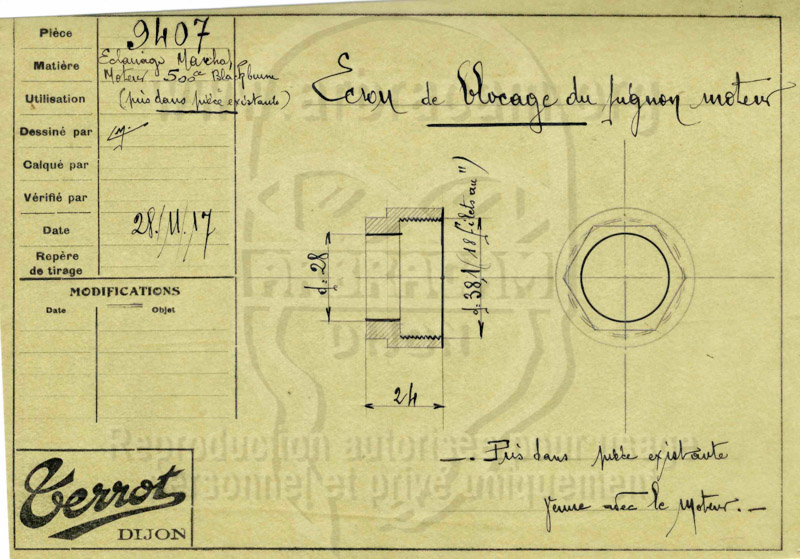 Pièce 9407
Matière Eclairage Marchal
Moteur 500cc Blackburne
Utilisation (pris dans pièce existante)
Dessiné par
Calqué par
Vérifié par
Date 28/11/17
Repère
de tirage
MODIFICATIONS
Date Objet
Ecrou de blocage du pignon moteur
d=28
d=38,1 (18 filets au ")
24
Pris dans pièce existante
venue avec le moteur.
Terrot
DIJON
Reproduction autorisée pour usage
personnel et privé uniquement